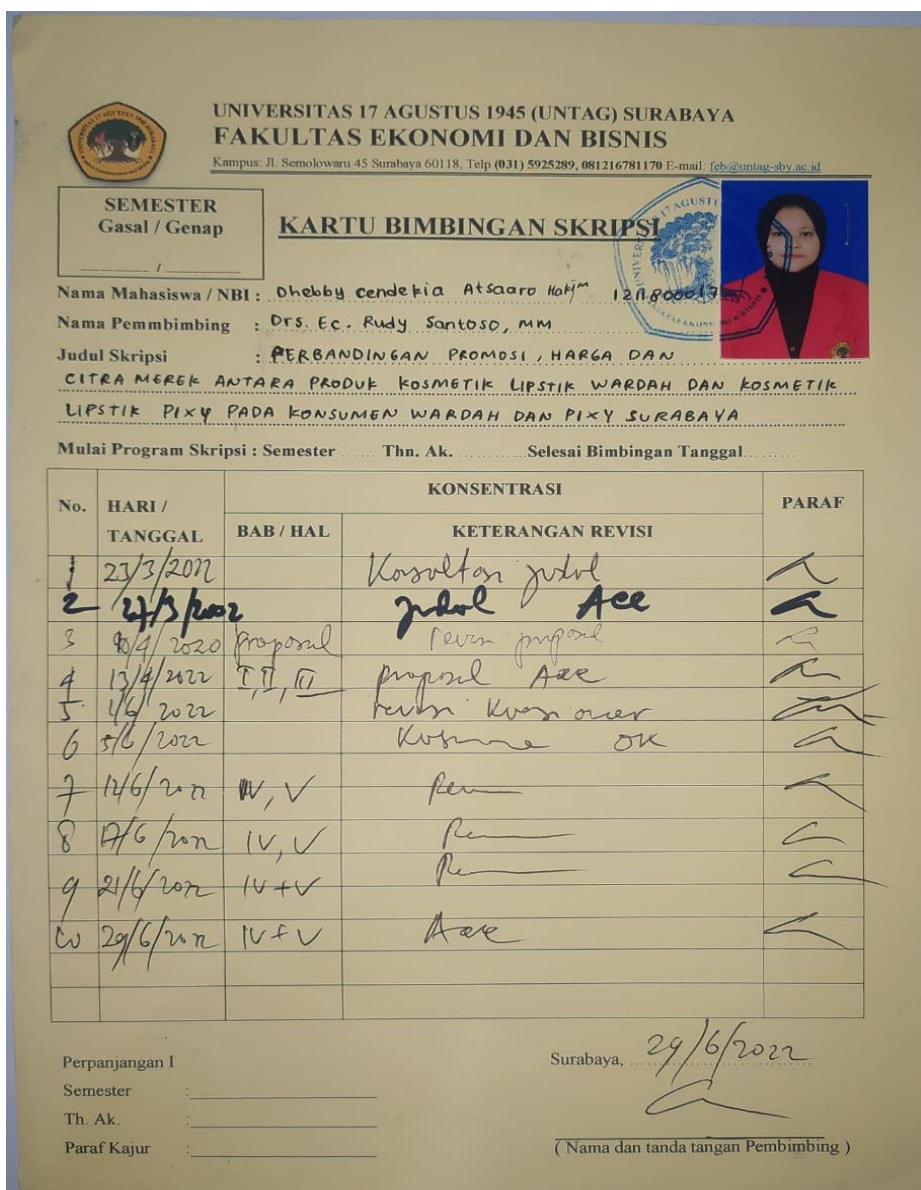 UNIVERSITAS 17 AGUSTUS 1945 (UNTAG) SURABAYA
FAKULTAS EKONOMI DAN BISNIS
Kampus: Jl. Semolowaru 45 Surabaya 60118, Telp (031) 5925289, 081216781170 E-mail: feb@untag-sby.ac.id
SEMESTER
Gasal / Genap
/
KARTU BIMBINGAN SKRIPSI
Nama Mahasiswa / NBI : Dhebby cendekia Atsaaro Hakim
Nama Pemmbimbing : Drs. Ec. Rudy Santoso, MM
Judul Skripsi : PERBANDINGAN PROMOSI, HARGA DAN
CITRA MEREK ANTARA PRODUK KOSMETIK LIPSTIK WARDAH DAN KOSMETIK
LIPSTIK PIXY PADA KONSUMEN WARDAH DAN PIXY SURABAYA
Mulai Program Skripsi : Semester ...... Thn. Ak. ............ Selesai Bimbingan Tanggal.........
No. HARI / TANGGAL KONSENTRASI PARAF
BAB / HAL KETERANGAN REVISI
1 23/3/2022 judul
2 judul Acc
3 proposal revisi proposal
4 13/4/2022 I, II, III proposal Acc
5 2022 revisi
6 5/6/2022 OK
7 IV, V
8 17/6/2022 IV, V
9 21/6/2022 IV + V
10 29/6/2022 IV + V Acc
Perpanjangan I
Semester :
Th. Ak. :
Paraf Kajur :
Surabaya, 29/6/2022
( Nama dan tanda tangan Pembimbing )